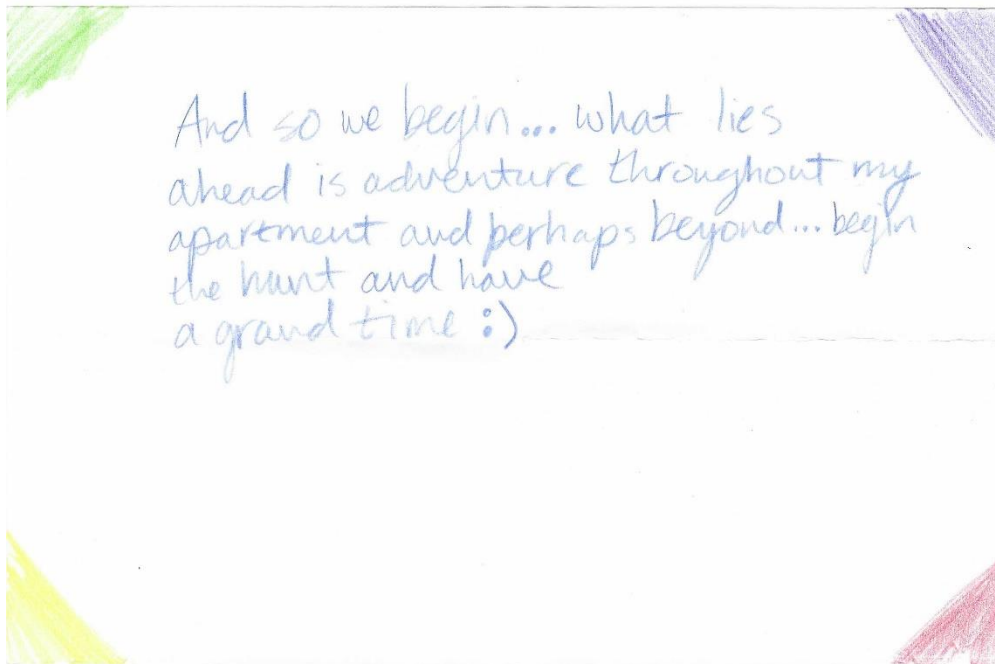 And so we begin... what lies
ahead is adventure throughout my
apartment and perhaps beyond... begin
the hunt and have
a grand time :)